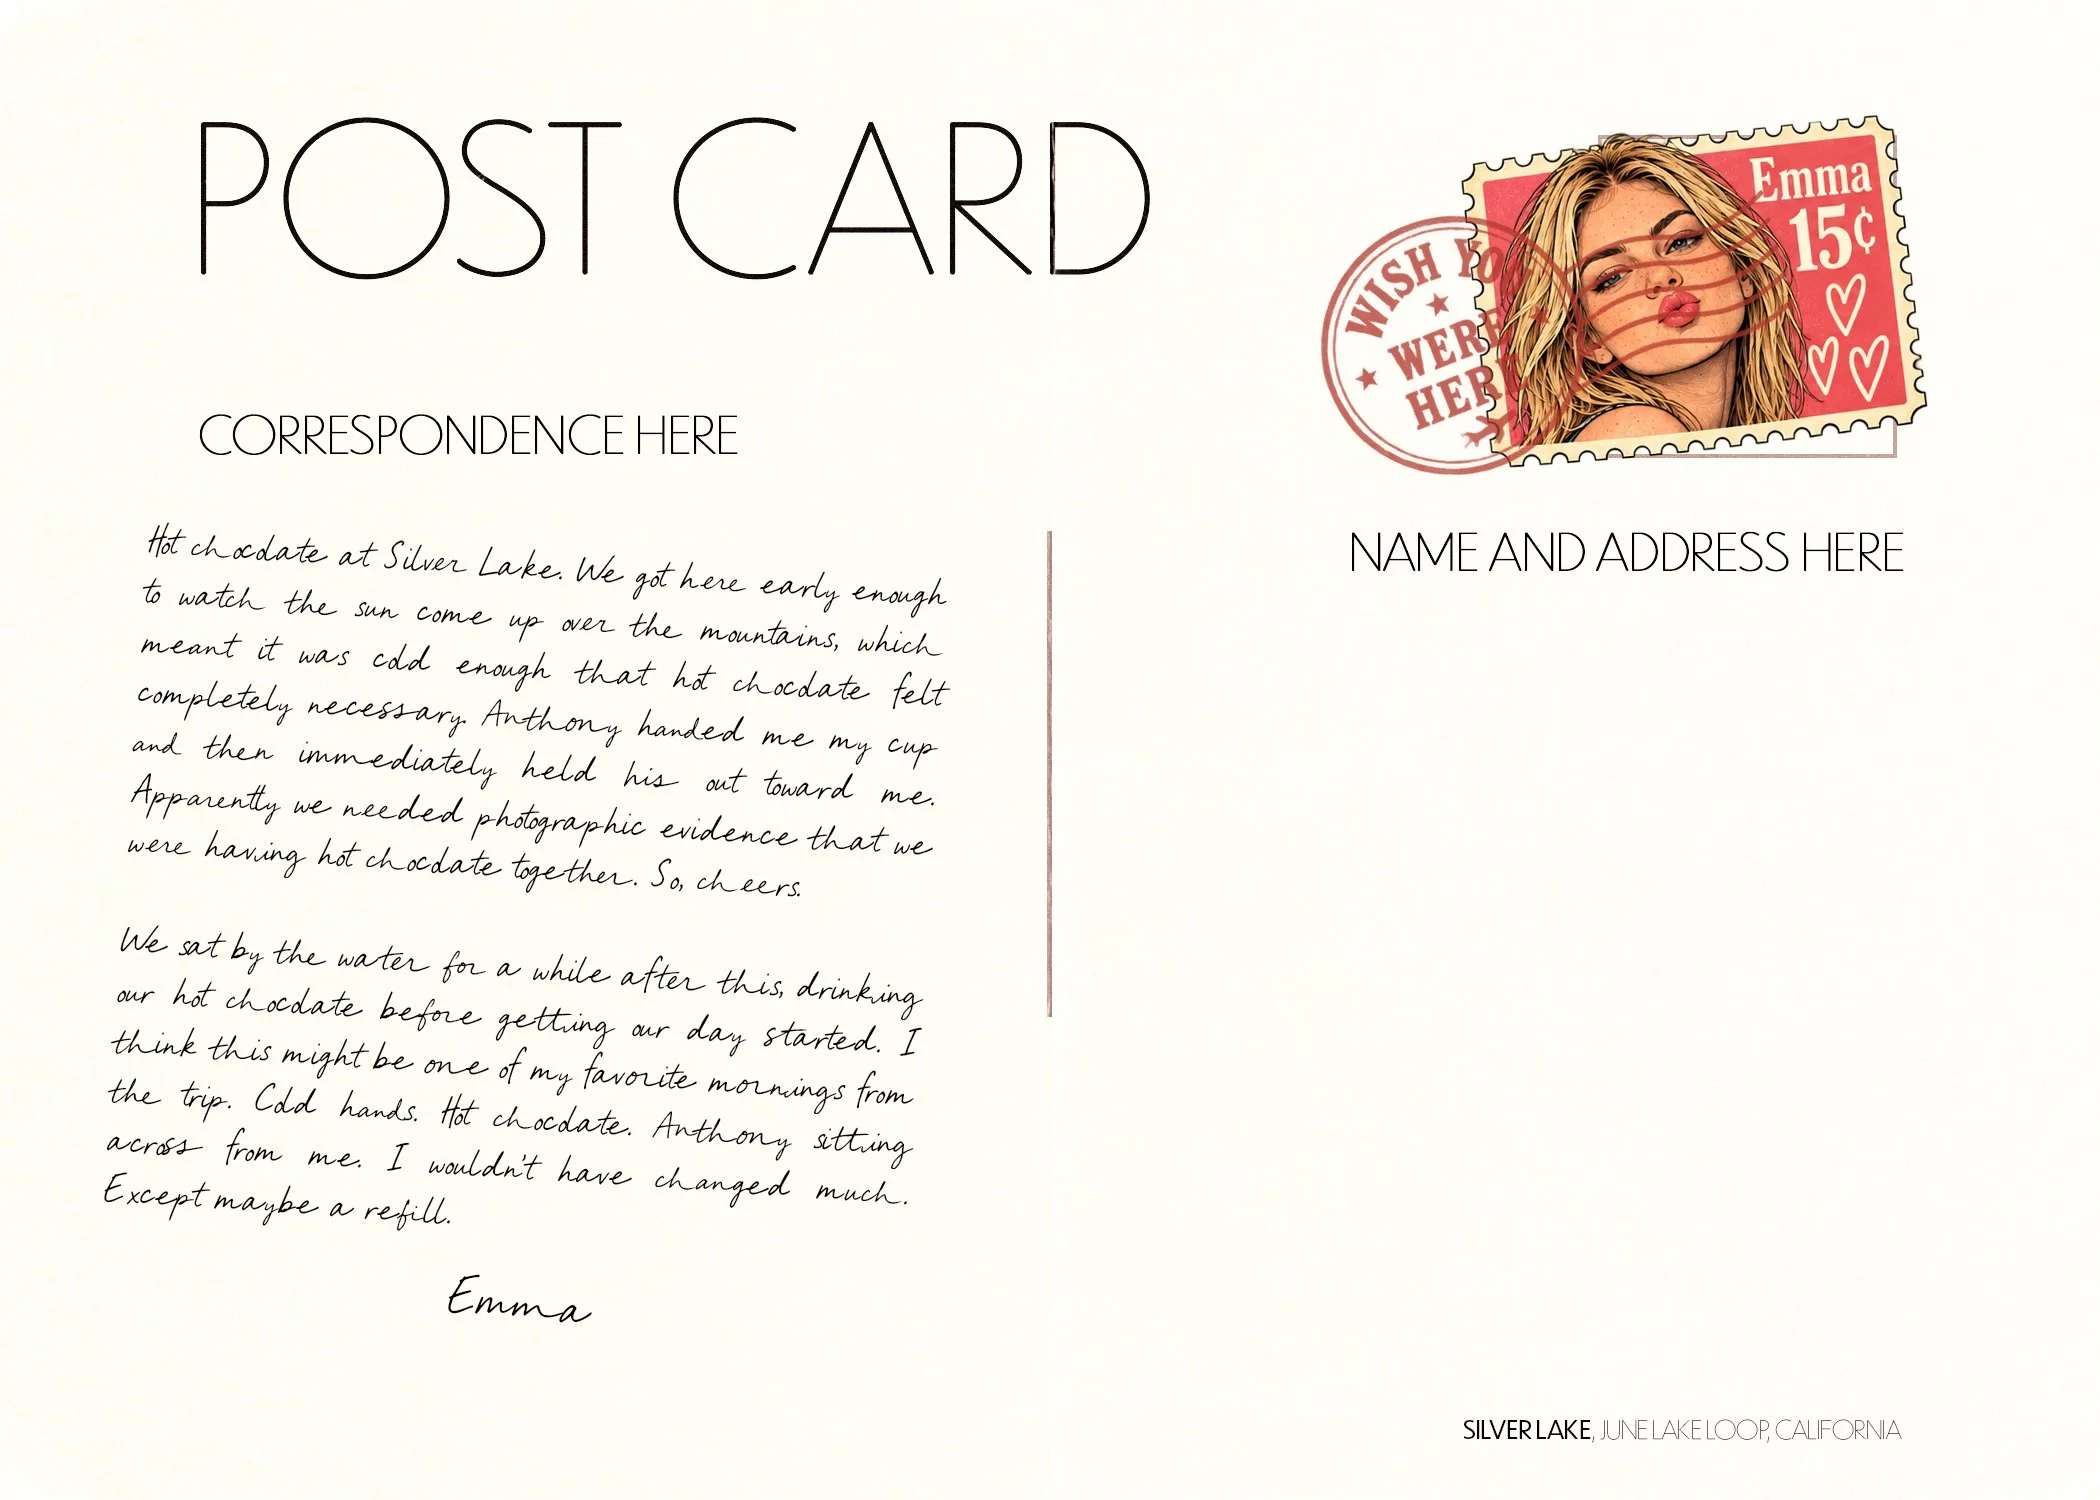 POST CARD
Emma
15¢
WISH YOU
WERE
HERE
CORRESPONDENCE HERE
NAME AND ADDRESS HERE
Hot chocolate at Silver Lake. We got here early enough
to watch the sun come up over the mountains, which
meant it was cold enough that hot chocolate felt
completely necessary. Anthony handed me my cup
and then immediately held his out toward me.
Apparently we needed photographic evidence that we
were having hot chocolate together. So, cheers.
We sat by the water for a while after this, drinking
our hot chocolate before getting our day started. I
think this might be one of my favorite mornings from
the trip. Cold hands. Hot chocolate. Anthony sitting
across from me. I wouldn't have changed much.
Except maybe a refill.
Emma
SILVER LAKE, JUNE LAKE LOOP, CALIFORNIA